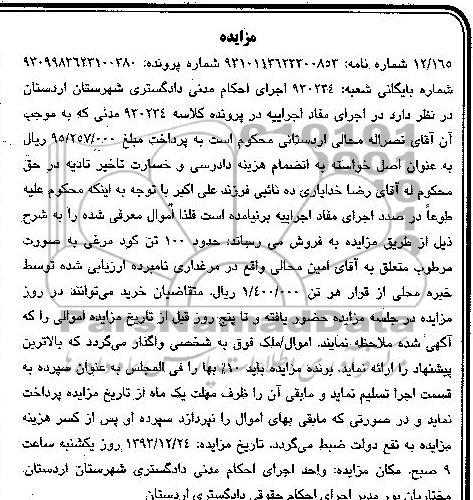 مزایده
۱۲/۱۶۵ شماره نامه: ۹۳۱۰۱۱۴۶۲۲۲۰۰۸۵۳ شماره پرونده: ۹۳۰۹۹۸۳۶۲۳۱۰۰۳۸۰
شماره بایگانی شعبه: ۹۳۰۲۳۴ اجرای احکام مدنی دادگستری شهرستان اردستان
در نظر دارد در اجرای مفاد اجراییه در پرونده کلاسه ۹۳۰۲۳۴ مدنی که به موجب
آن آقای نصراله محالی اردستانی محکوم است به پرداخت مبلغ ۹۵/۲۵۷/۰۰۰ ریال
به عنوان اصل خواسته به انضمام هزینه دادرسی و خسارت تاخیر تادیه در حق
محکوم له آقای رضا خدایاری ده نائبی فرزند علی اکبر با توجه به اینکه محکوم علیه
طوعاً در صدد اجرای مفاد اجراییه برنیامده است فلذا اموال معرفی شده را به شرح
ذیل از طریق مزایده به فروش می رساند: حدود ۱۰۰ تن کود مرغی به صورت
مرطوب متعلق به آقای امین محالی واقع در مرغداری نامبرده ارزیابی شده توسط
خبره محلی از قرار هر تن ۱/۴۰۰/۰۰۰ ریال. متقاضیان خرید می‌توانند در روز
مزایده در جلسه مزایده حضور یافته و تا پنج روز قبل از تاریخ مزایده اموالی را که
آگهی شده ملاحظه نمایند. اموال/ملک فوق به شخصی واگذار می‌گردد که بالاترین
پیشنهاد را ارائه نماید. برنده مزایده باید ۱۰٪ بها را فی المجلس به عنوان سپرده به
قسمت اجرا تسلیم نماید و مابقی آن را ظرف مهلت یک ماه از تاریخ مزایده پرداخت
نماید و در صورتی که مابقی بهای اموال را نپردازد سپرده او پس از کسر هزینه
مزایده به نفع دولت ضبط می‌گردد. تاریخ مزایده: ۱۳۹۳/۱۲/۲۴ روز یکشنبه ساعت
۹ صبح. مکان مزایده: واحد اجرای احکام مدنی دادگستری شهرستان اردستان.
مختاریان پور مدیر اجرای احکام حقوقی دادگستری اردستان